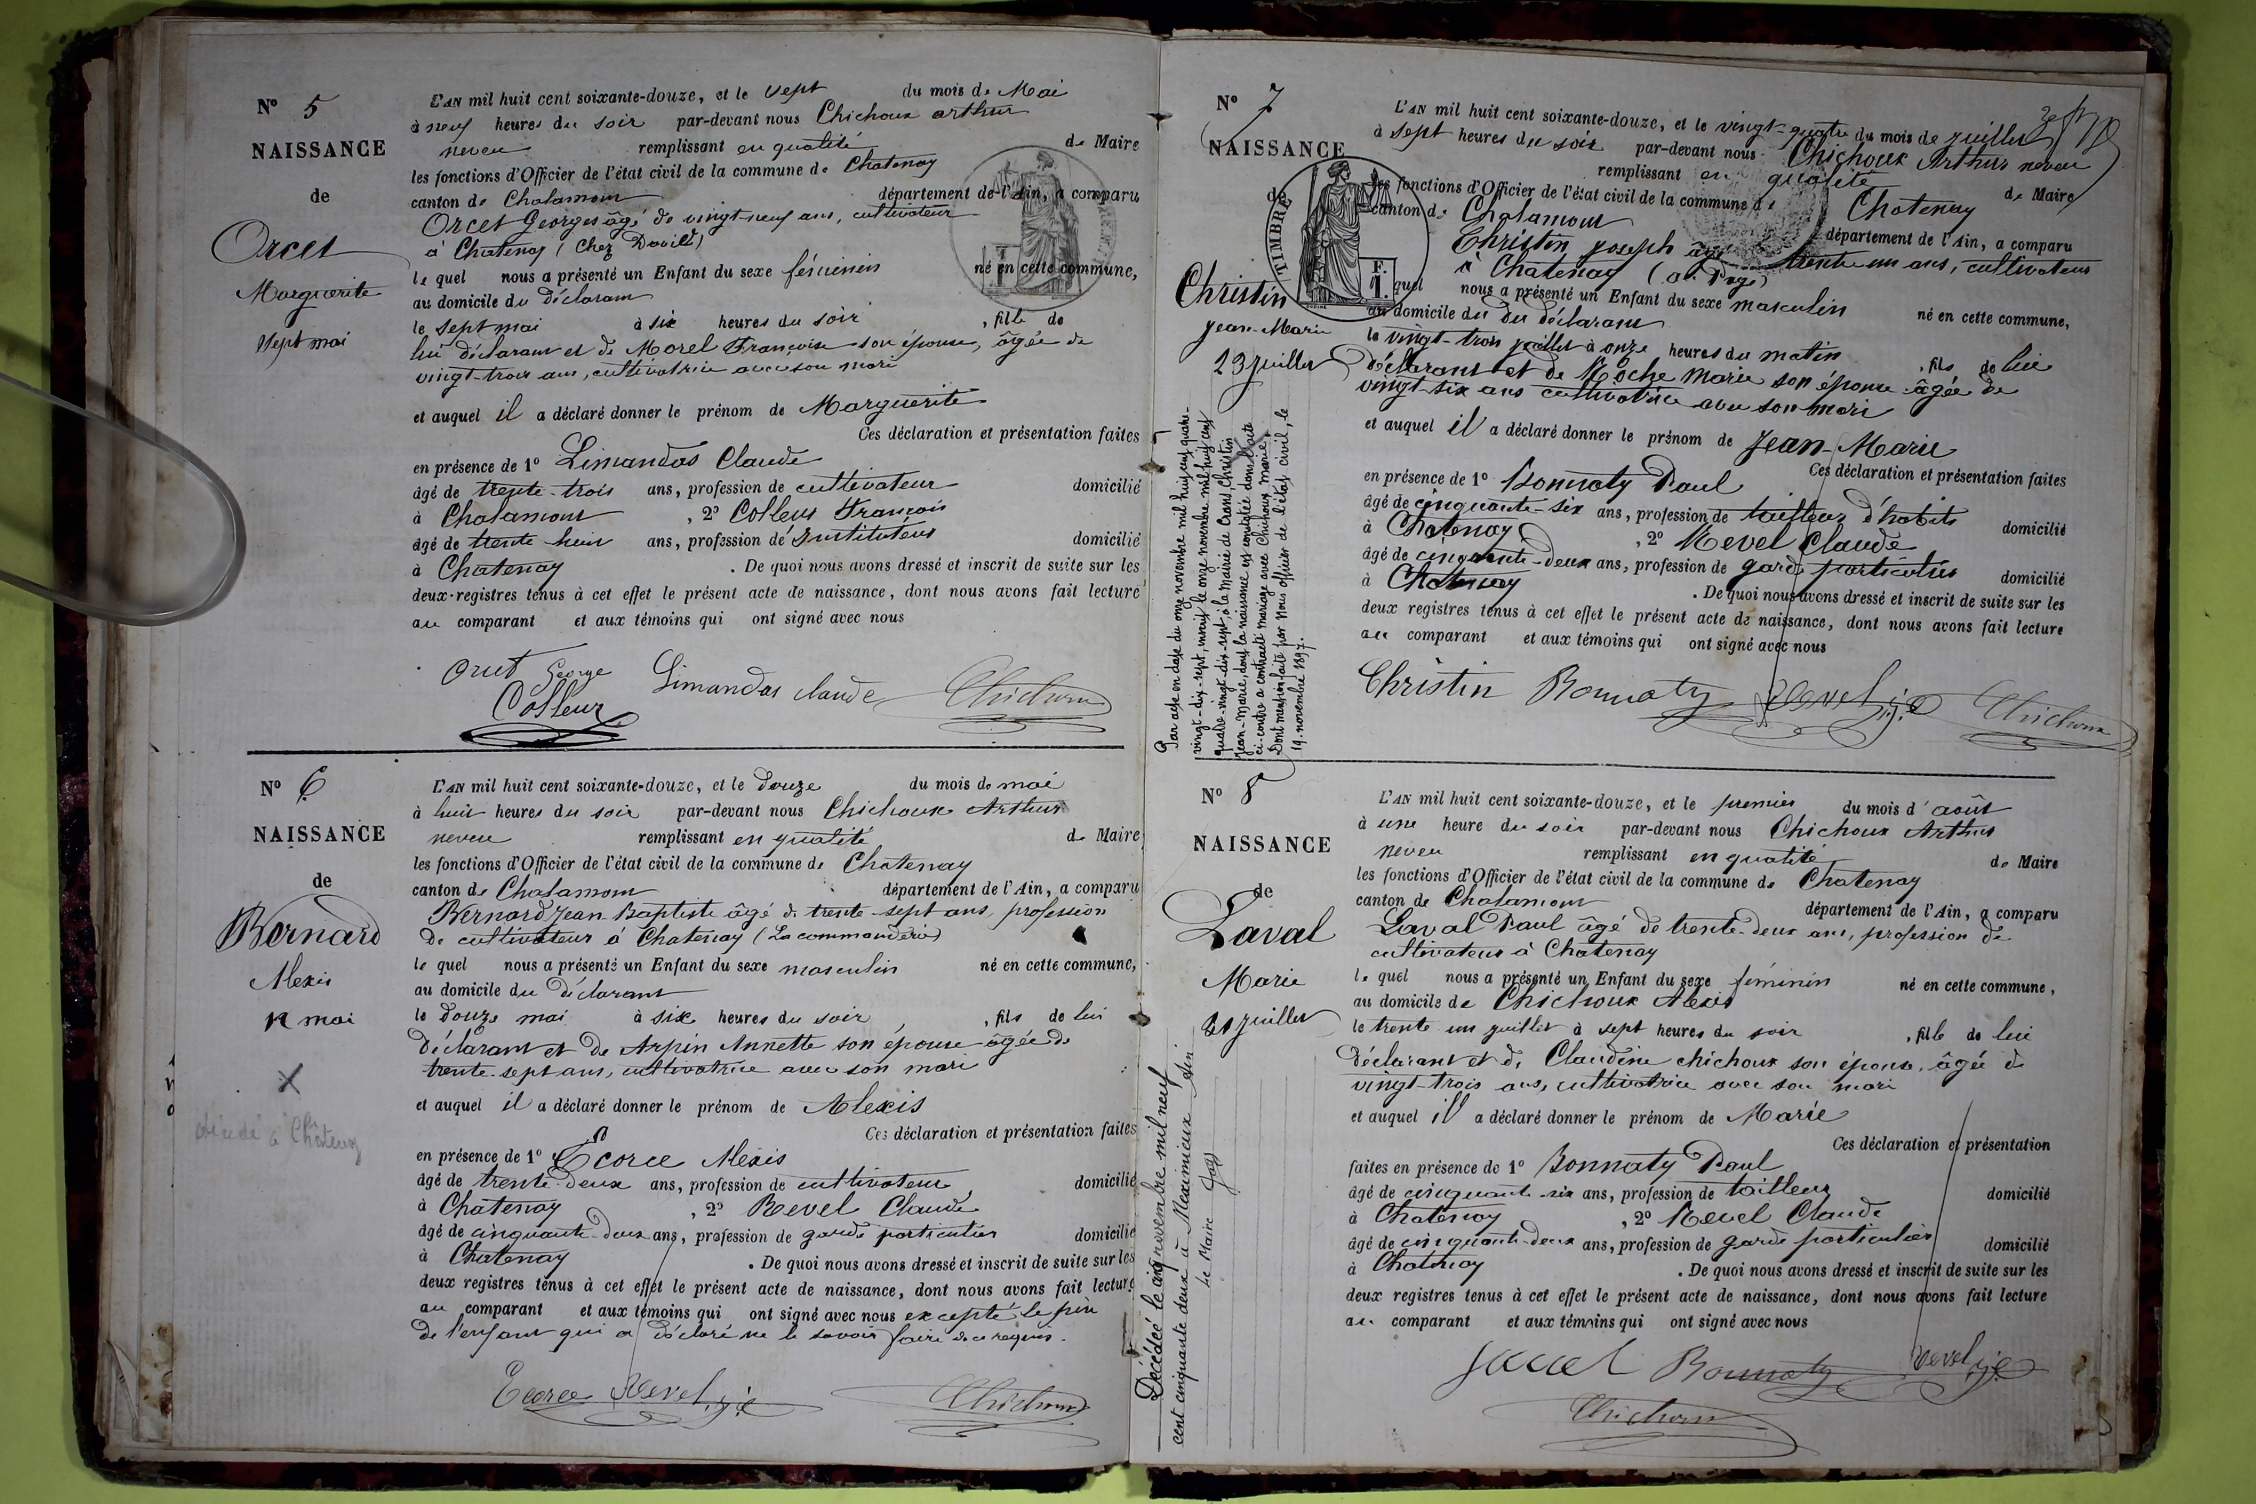 N° 5
NAISSANCE
de
Orcet
Marguerite
sept mai
L'AN mil huit cent soixante-douze, et le sept du mois de Mai
à neuf heures du soir par-devant nous Chichoux arthur
neveu remplissant en qualité de Maire
les fonctions d'Officier de l'état civil de la commune de Chatenay
canton de Chalamont département de l'Ain, a comparu
Orcet Georges âgé de vingt-neuf ans, cultivateur
à Chatenay (chez
le quel nous a présenté un Enfant du sexe féminin né en cette commune,
au domicile du déclarant
le sept mai à six heures du soir, fille de
lui déclarant et de Morel Françoise son épouse, âgée de
vingt-trois ans, cultivatrice avec son mari
et auquel il a déclaré donner le prénom de Marguerite
Ces déclaration et présentation faites
en présence de 1° Limandas Claude
âgé de trente-trois ans, profession de cultivateur domicilié
à Chalamont, 2° Colleur François
âgé de trente-huit ans, profession de Instituteur domicilié
à Chatenay. De quoi nous avons dressé et inscrit de suite sur les
deux registres tenus à cet effet le présent acte de naissance, dont nous avons fait lecture
au comparant et aux témoins qui ont signé avec nous
Orcet George Limandas claude Chichoux
Colleur
N° 6
NAISSANCE
de
Bernard
Alexis
12 mai
X
décédé à Châtenay
L'AN mil huit cent soixante-douze, et le douze du mois de mai
à huit heures du soir par-devant nous Chichoux Arthur
neveu remplissant en qualité de Maire
les fonctions d'Officier de l'état civil de la commune de Chatenay
canton de Chalamont département de l'Ain, a comparu
Bernard Jean-Baptiste âgé de trente-sept ans, profession
de cultivateur à Chatenay (La commanderie)
le quel nous a présenté un Enfant du sexe masculin né en cette commune,
au domicile du déclarant
le douze mai à six heures du soir, fils de lui
déclarant et de Arpin Annette son épouse âgée de
trente-sept ans, cultivatrice avec son mari
et auquel il a déclaré donner le prénom de Alexis
Ces déclaration et présentation faites
en présence de 1° Ecorce Alexis
âgé de trente-deux ans, profession de cultivateur domicilié
à Chatenay, 2° Revel Claude
âgé de cinquante-deux ans, profession de garde particulier domicilié
à Chatenay. De quoi nous avons dressé et inscrit de suite sur les
deux registres tenus à cet effet le présent acte de naissance, dont nous avons fait lecture
au comparant et aux témoins qui ont signé avec nous excepté le père
de l'enfant qui a déclaré ne le savoir faire de ce requis.
Ecorce Revel Chichoux
N° 7
NAISSANCE
de
TIMBRE
Christin
Jean-Marie
23 juillet
L'AN mil huit cent soixante-douze, et le vingt-quatre du mois de juillet
à sept heures du soir par-devant nous Chichoux Arthur neveu
remplissant en qualité de Maire
les fonctions d'Officier de l'état civil de la commune de Chatenay
canton de Chalamont département de l'Ain, a comparu
Christin Joseph âgé trente un ans, cultivateur
à Chatenay (
le quel nous a présenté un Enfant du sexe masculin né en cette commune,
au domicile du du déclarant
le vingt-trois juillet à onze heures du matin, fils de lui
déclarant et de Roche Marie son épouse âgée de
vingt-six ans cultivatrice avec son mari
et auquel il a déclaré donner le prénom de Jean-Marie
Ces déclaration et présentation faites
en présence de 1° Bonnaty Paul
âgé de cinquante-six ans, profession de tailleur d'habits domicilié
à Chatenay, 2° Revel Claude
âgé de cinquante-deux ans, profession de garde particulier domicilié
à Chatenay. De quoi nous avons dressé et inscrit de suite sur les
deux registres tenus à cet effet le présent acte de naissance, dont nous avons fait lecture
au comparant et aux témoins qui ont signé avec nous
Christin Bonnaty Revel Chichoux
Par acte en date du onze novembre mil huit cent quatre-
vingt-dix-sept, le onze novembre mil huit cent
quatre-vingt-dix-sept, à la mairie de Crans Christin
Jean-Marie, dont la naissance est constatée dans l'acte
ci-contre a contracté mariage avec Chichoux Marie.
Dont mention faite par Nous officier de l'état civil, le
19 novembre 1897.
N° 8
NAISSANCE
de
Laval
Marie
31 juillet
L'AN mil huit cent soixante-douze, et le premier du mois d'août
à une heure du soir par-devant nous Chichoux Arthur
neveu remplissant en qualité de Maire
les fonctions d'Officier de l'état civil de la commune de Chatenay
canton de Chalamont département de l'Ain, a comparu
Laval Paul âgé de trente-deux ans, profession de
cultivateur à Chatenay
le quel nous a présenté un Enfant du sexe féminin né en cette commune,
au domicile de Chichoux Alexis
le trente un juillet à sept heures du soir, fille de lui
déclarant et de Claudine chichoux son épouse, âgée de
vingt-trois ans, cultivatrice avec son mari
et auquel il a déclaré donner le prénom de Marie
Ces déclaration et présentation
faites en présence de 1° Bonnaty Paul
âgé de cinquante-six ans, profession de tailleur domicilié
à Chatenay, 2° Revel Claude
âgé de cinquante-deux ans, profession de garde particulier domicilié
à Chatenay. De quoi nous avons dressé et inscrit de suite sur les
deux registres tenus à cet effet le présent acte de naissance, dont nous avons fait lecture
au comparant et aux témoins qui ont signé avec nous
Laval Bonnaty Revel
Chichoux
Décédée le novembre mil neuf
cent cinquante deux à Meximieux Ain
Le Maire